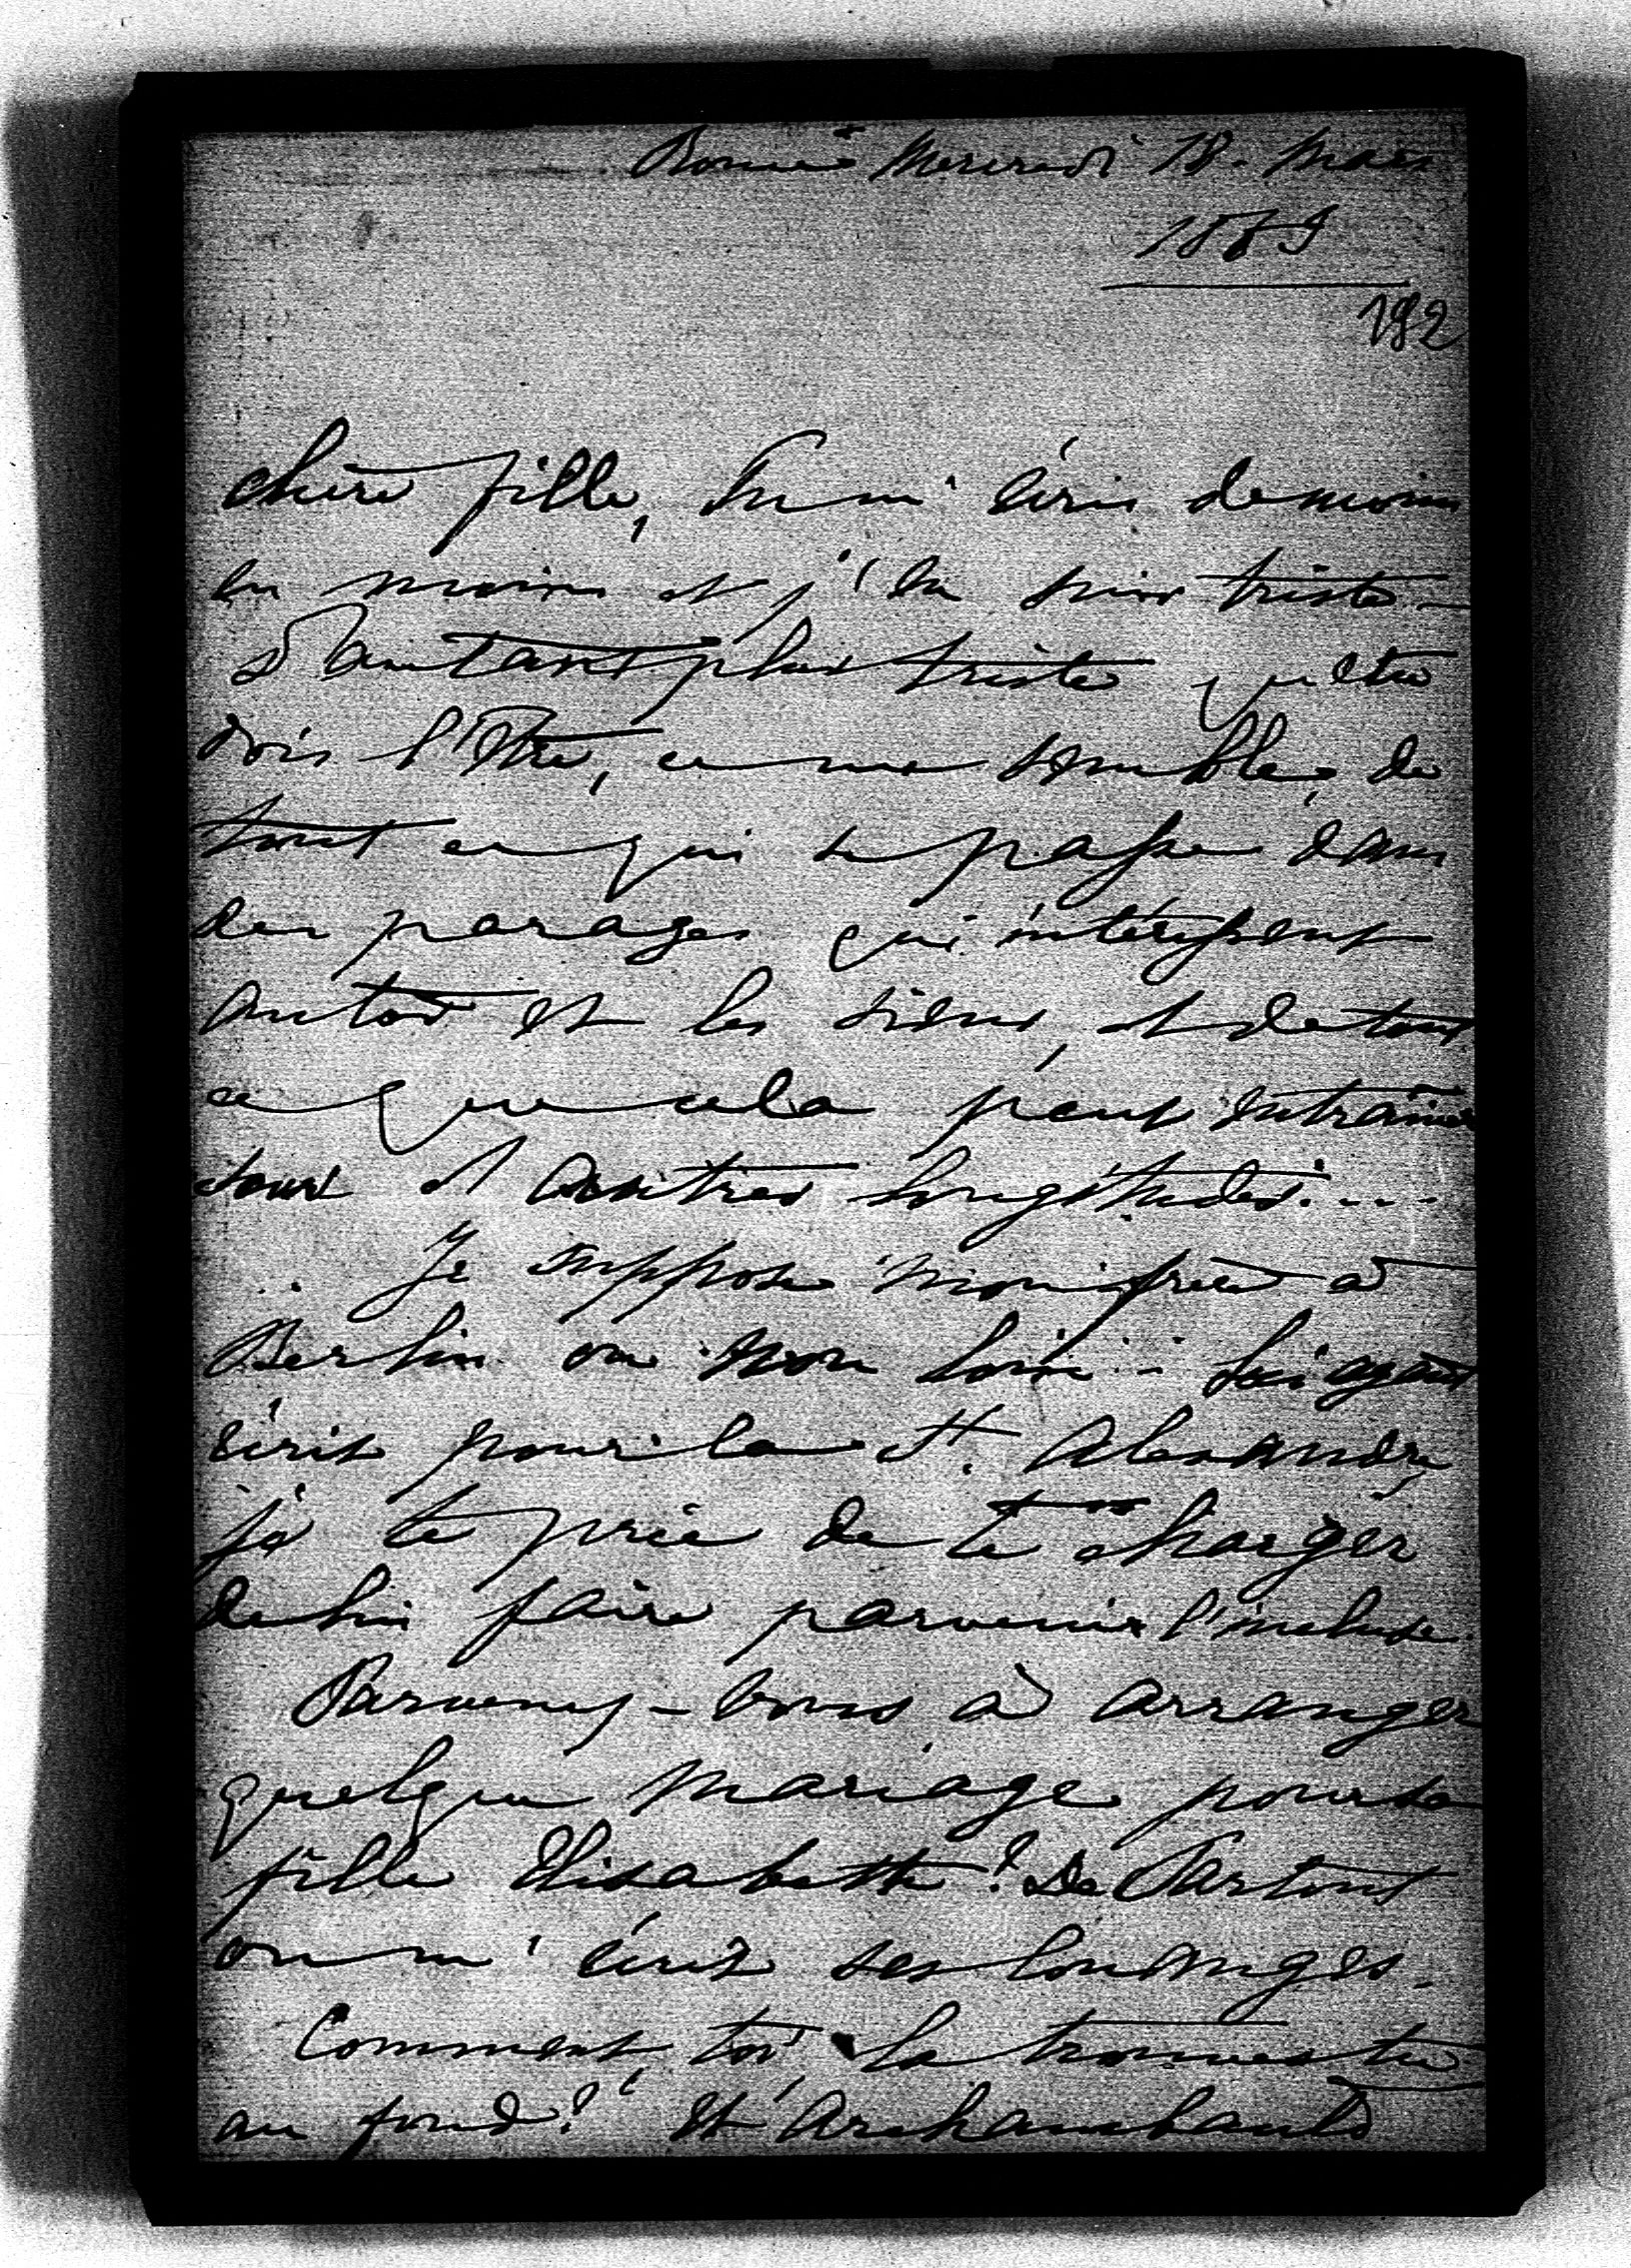 Rome Mercredi 18. Mars
1885
192
chère fille, Tu m'écris de moins
en moins et j'en suis triste -
d'autant plus triste que tu
dois l'être, ce me semble, de
tout ce qui se passe dans
des parages qui intéressent
an toi et les tiens, et de tout
ce que cela peut entraîner
sous d'autres longitudes....
Je suppose mon frère à
Berlin ou non loin - lui ayant
écrit pour la St. Alexandre,
je te prie de te charger
de lui faire parvenir l'incluse.
Parvenez-vous à arranger
quelque mariage pour ta
fille Elisabeth? De Partout
on m'écrit ses louanges.
Comment, toi, la trouves tu
au fond? Et Archambauld